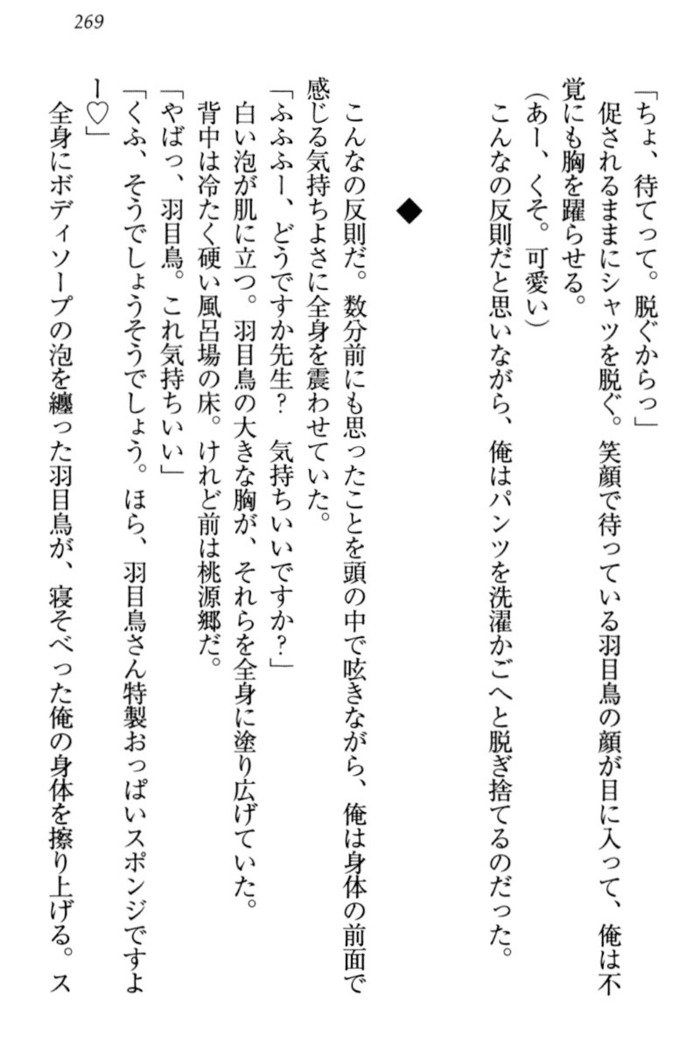 269
「ちょ、待てって。脱ぐからっ」
促されるままにシャツを脱ぐ。笑顔で待っている羽目鳥の顔が目に入って、俺は不
覚にも胸を躍らせる。
(あー、くそ。可愛い)
こんなの反則だと思いながら、俺はパンツを洗濯かごへと脱ぎ捨てるのだった。
◆
こんなの反則だ。数分前にも思ったことを頭の中で呟きながら、俺は身体の前面で
感じる気持ちよさに全身を震わせていた。
「ふふふー、どうですか先生? 気持ちいいですか?」
白い泡が肌に立つ。羽目鳥の大きな胸が、それらを全身に塗り広げていた。
背中は冷たく硬い風呂場の床。けれど前は桃源郷だ。
「やばっ、羽目鳥。これ気持ちいい」
「くふ、そうでしょうそうでしょう。ほら、羽目鳥さん特製おっぱいスポンジですよ
ー♡」
全身にボディソープの泡を纏った羽目鳥が、寝そべった俺の身体を擦り上げる。ス